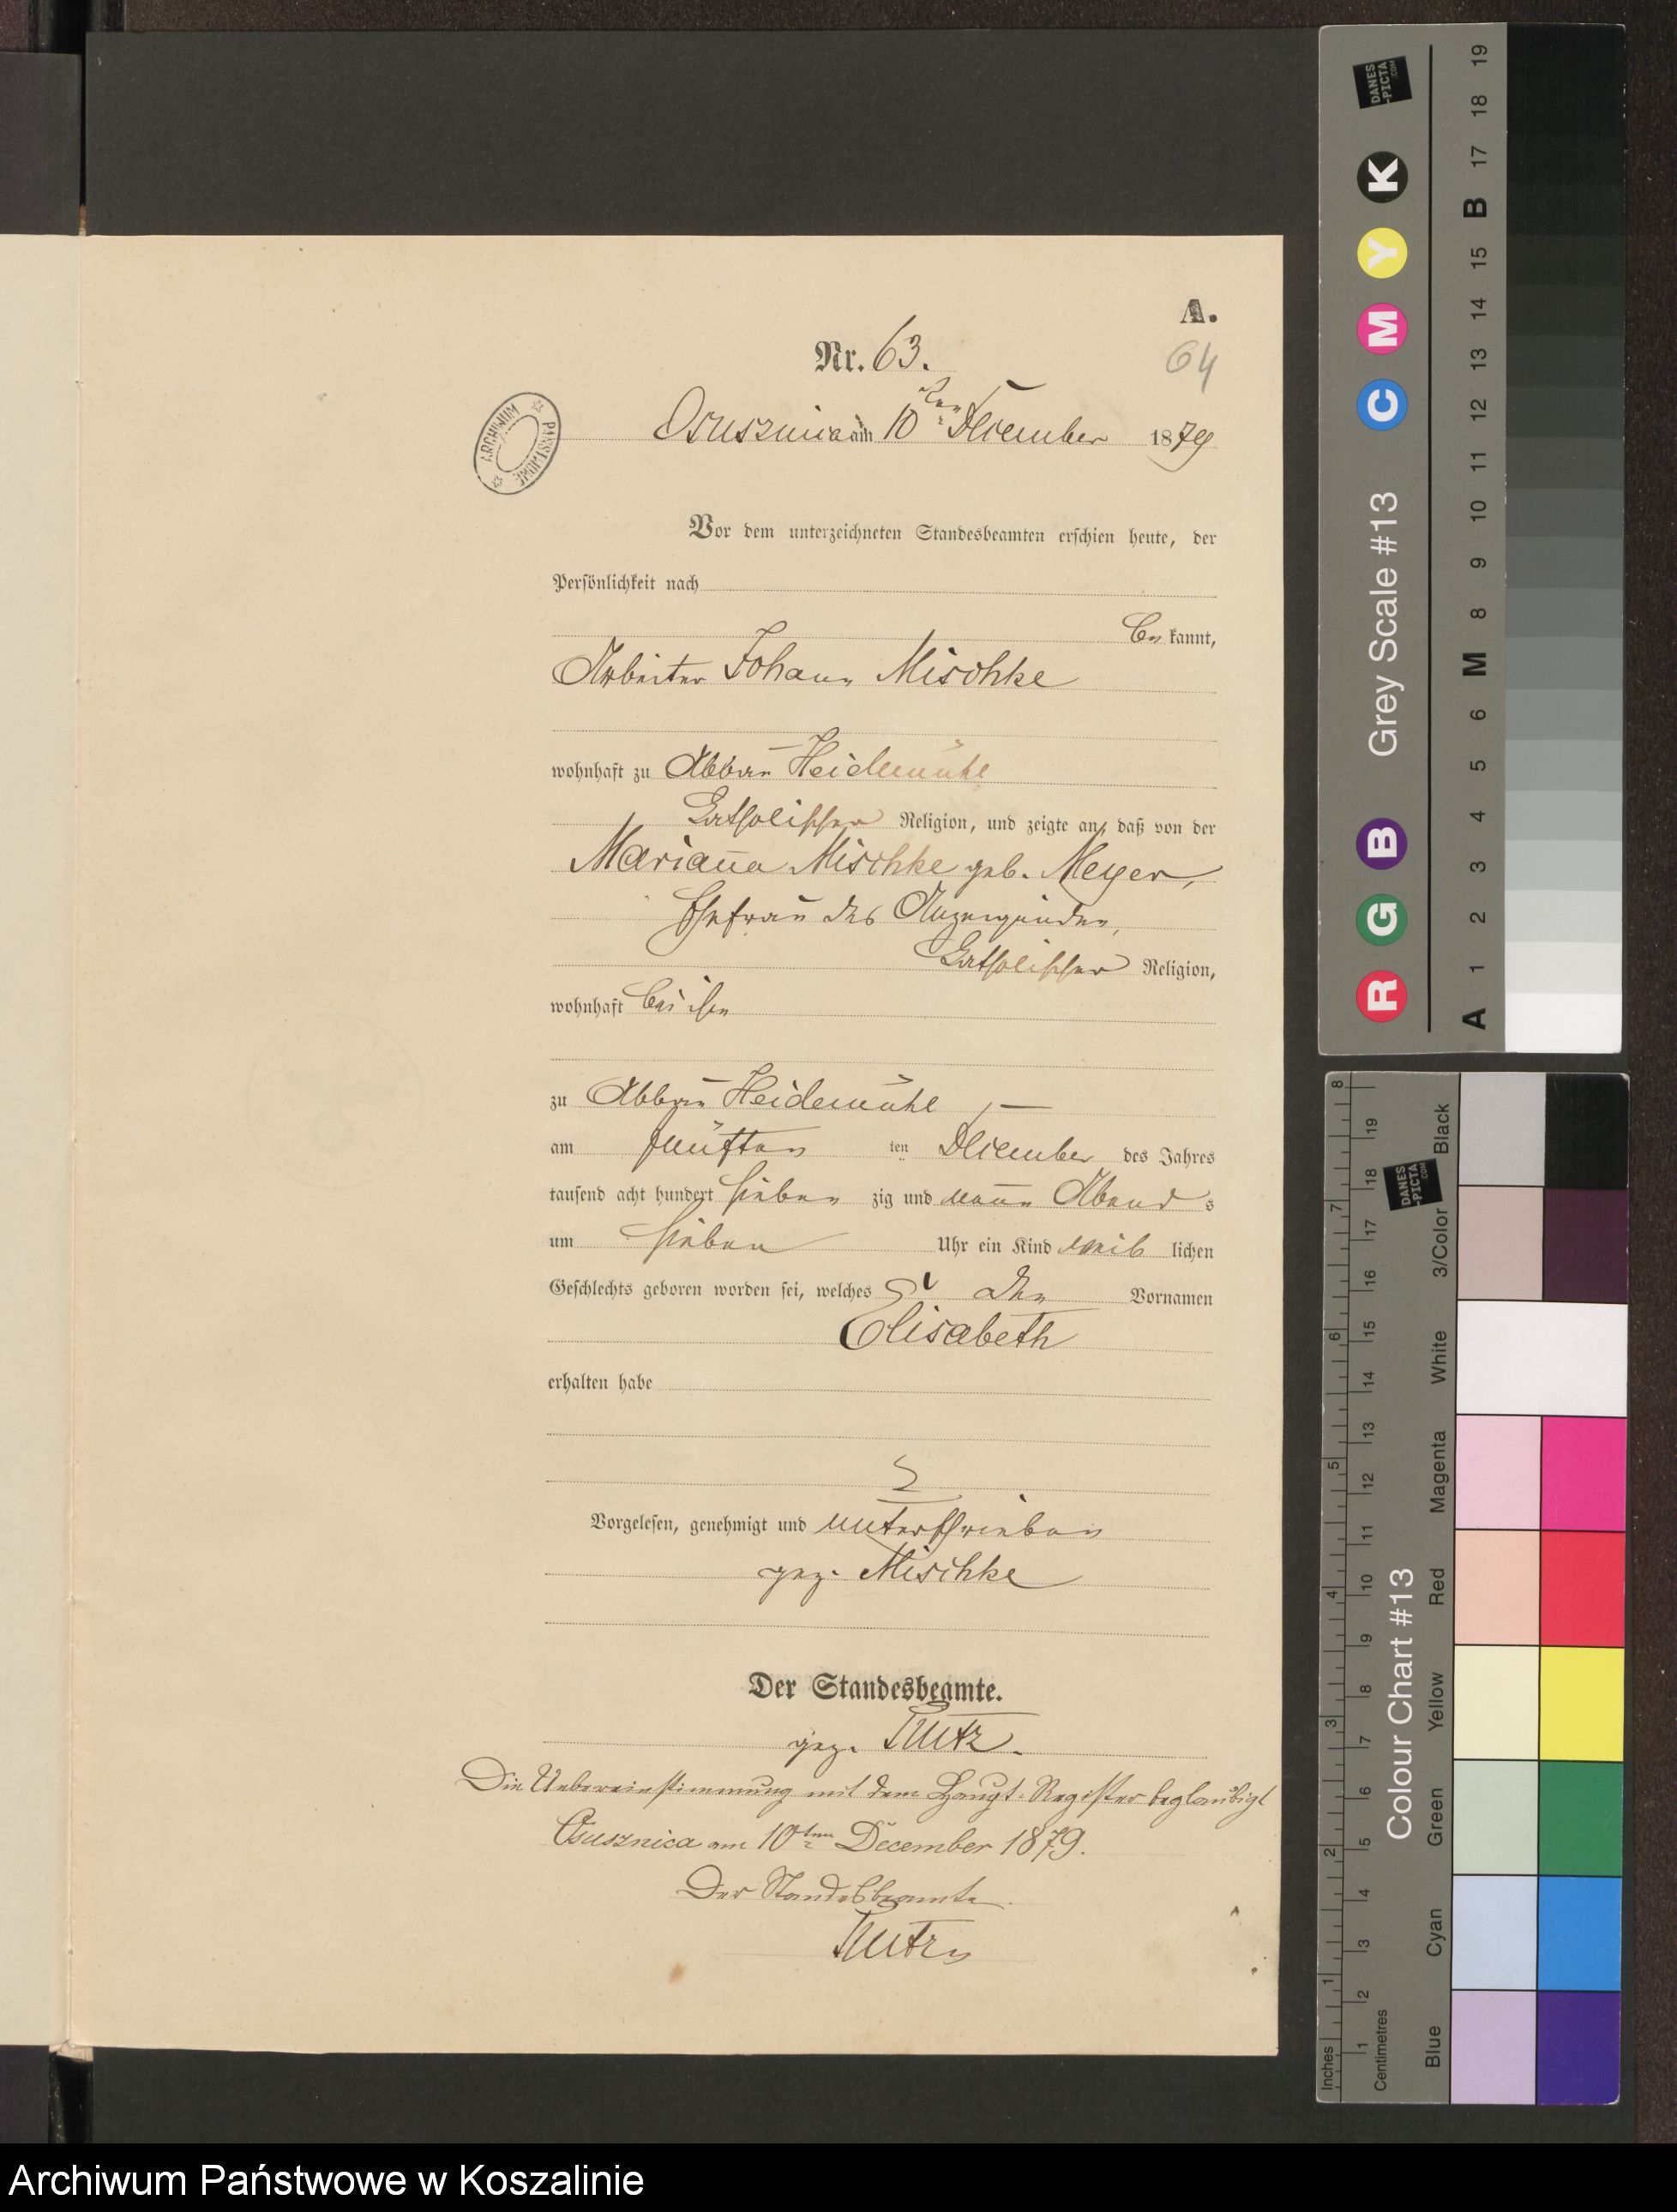 A.
Nr. 63.
64
Osusznica am 10ten December 1879
ARCHIWUM PAŃSTWOWE
Vor dem unterzeichneten Standesbeamten erschien heute, der
Persönlichkeit nach
be kannt,
Arbeiter Johann Mischke
wohnhaft zu Abbau Heidemühl
katholischer Religion, und zeigte an, daß von der
Marianna Mischke geb. Meyer,
Ehefrau des Anzeigenden,
katholischer Religion,
wohnhaft bei ihm
zu Abbau Heidemühl,
am fünften ten December des Jahres
tausend acht hundert sieben zig und neun Abend s
um sieben Uhr ein Kind weib lichen
Geschlechts geboren worden sei, welches den Vornamen
Elisabeth
erhalten habe
Vorgelesen, genehmigt und unterschrieben
gez. Mischke
Der Standesbeamte.
gez.
Die Uebereinstimmung mit dem Haupt-Register beglaubigt
Osusznica am 10ten December 1879.
Der Standesbeamte.
Grey Scale #13
DANES-PICTA.COM
R G B C M Y K
A 1 2 3 4 5 6 M 8 9 10 11 12 13 14 15 B 17 18 19
Colour Chart #13
DANES-PICTA.COM
Inches 1 2 3 4 5 6 7 8
Centimetres 1 2 3 4 5 6 7 8 9 10 11 12 13 14 15 16 17 18 19
Blue Cyan Green Yellow Red Magenta White 3/Color Black
Archiwum Państwowe w Koszalinie